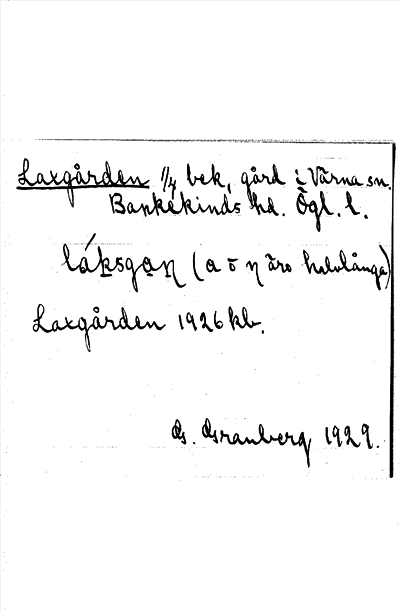 Laxgården 1/4 bek. gård i Värna sn.
Bankekinds hd. Ögl. l.
láksgan̥ (a o η äro halvlånga)
Laxgården 1926 kb.
G. Granberg 1929.